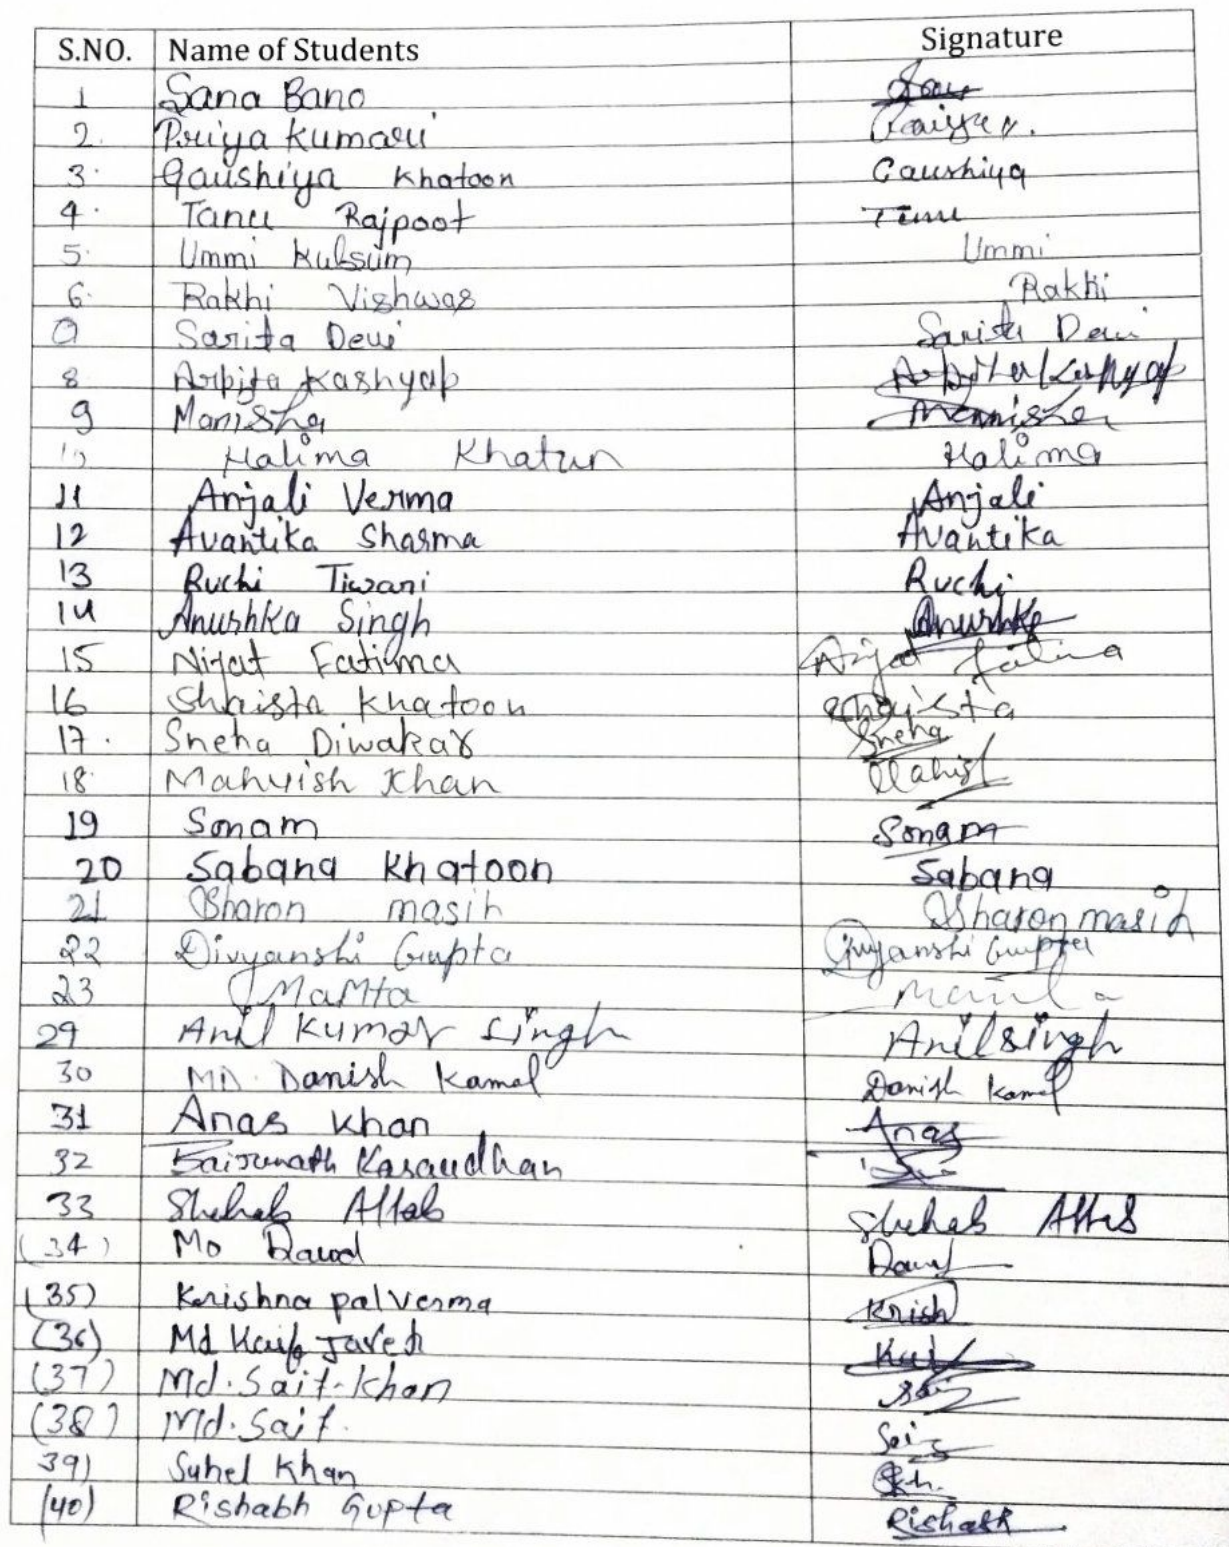 S.NO. Name of Students Signature
1 Sana Bano
2. Priya Kumari
3. Gaushiya Khatoon Gaushiya
4. Tanu Rajpoot Tanu
5. Ummi Kulsum Ummi
6. Rakhi Vishwas Rakhi
Sarita Devi Sarita Devi
8 Arpita Kashyap Arpita Kashyap
9 Manisha Mannisha
10 Halima Khatun Halima
11 Anjali Verma Anjali
12 Avantika Sharma Avantika
13 Ruchi Tiwari Ruchi
14 Anushka Singh Anushka
15 Nijat Fatima Nijat Fatima
16 Shaista Khatoon Shaista
17. Sneha Diwakar Sneha
18. Mahvish Khan Mahish
19 Sonam Sonam
20 Sabana Khatoon Sabana
21 Sharon masih Sharon masih
22 Divyanshi Gupta Divyanshi Gupta
23 MaMta
29 Anil Kumar Singh Anil singh
30 MD. Danish Kamal Danish Kamal
31 Anas Khan Anas
32 Baijunath Kasaudhan
33 Shehab Altab Shehab Altab
(34) Mo Dawod
(35) Krishna pal Verma Krish
(36) Md Kaif Javed Kaif
(37) Md. Saif Khan
(38) Md. Saif. Saif
39) Suhel Khan
(40) Rishabh Gupta Rishabh